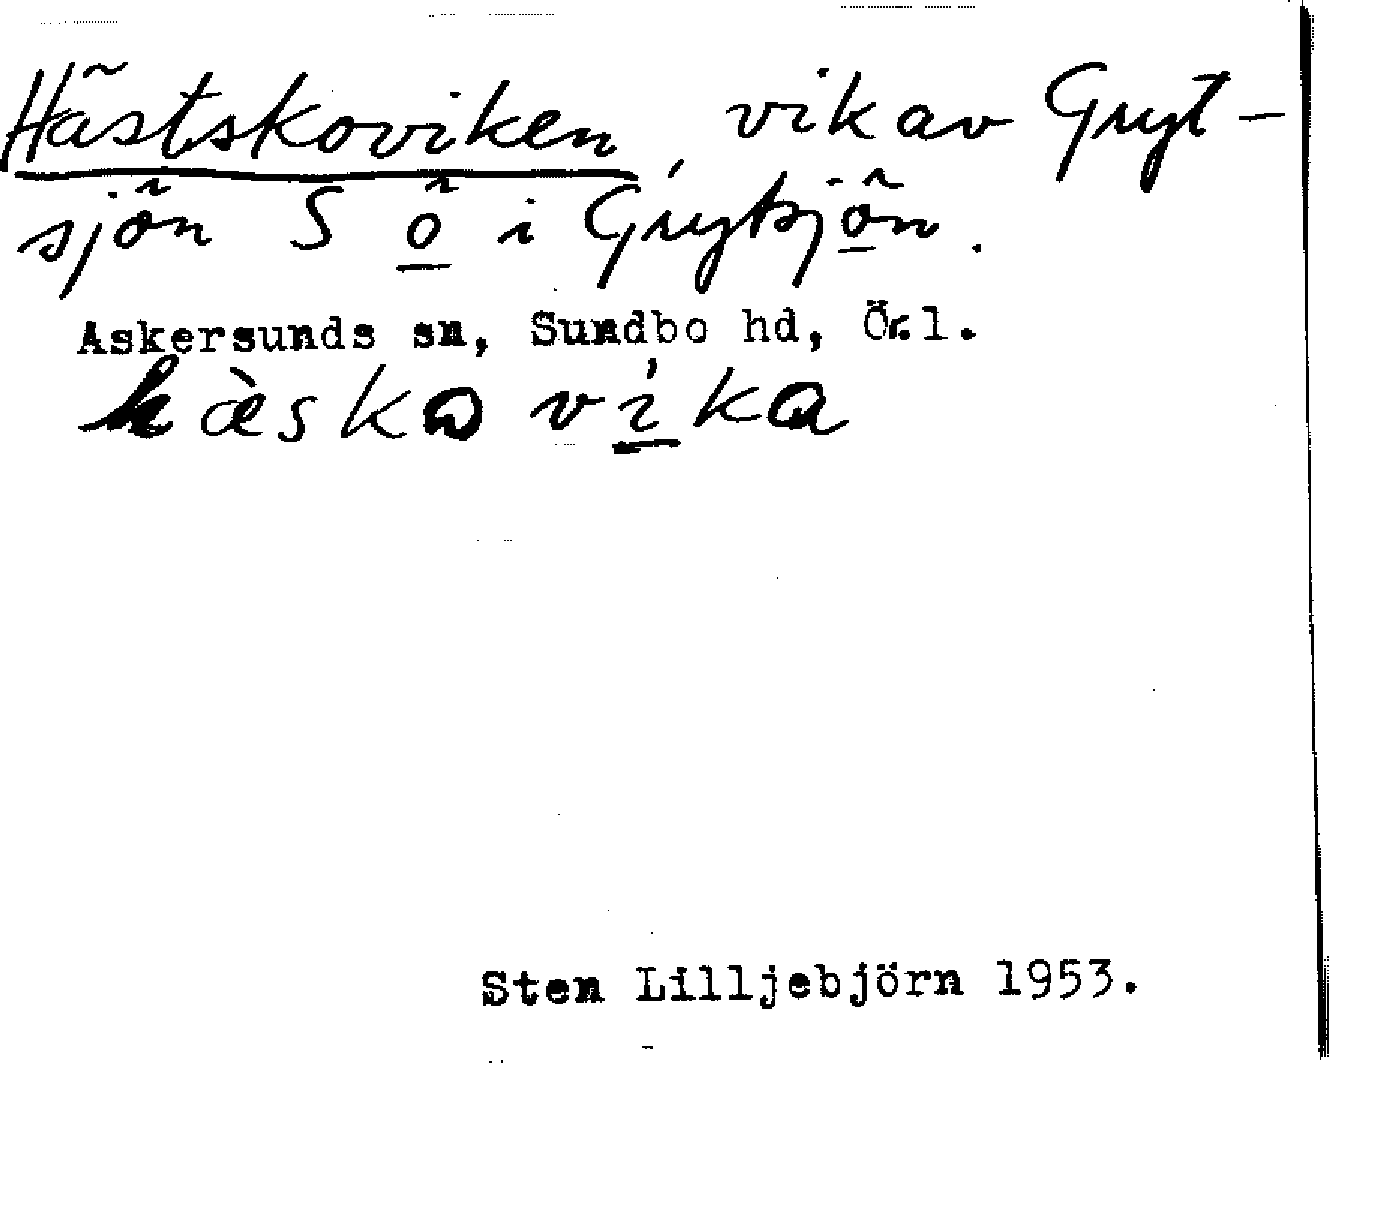 Hästskoviken, vik av Gryt-
sjön S ö i Grytsjön.
Askersunds sn, Sundbo hd, Ör.l.
hæ̀sko víka
Sten Lilljebjörn 1953.